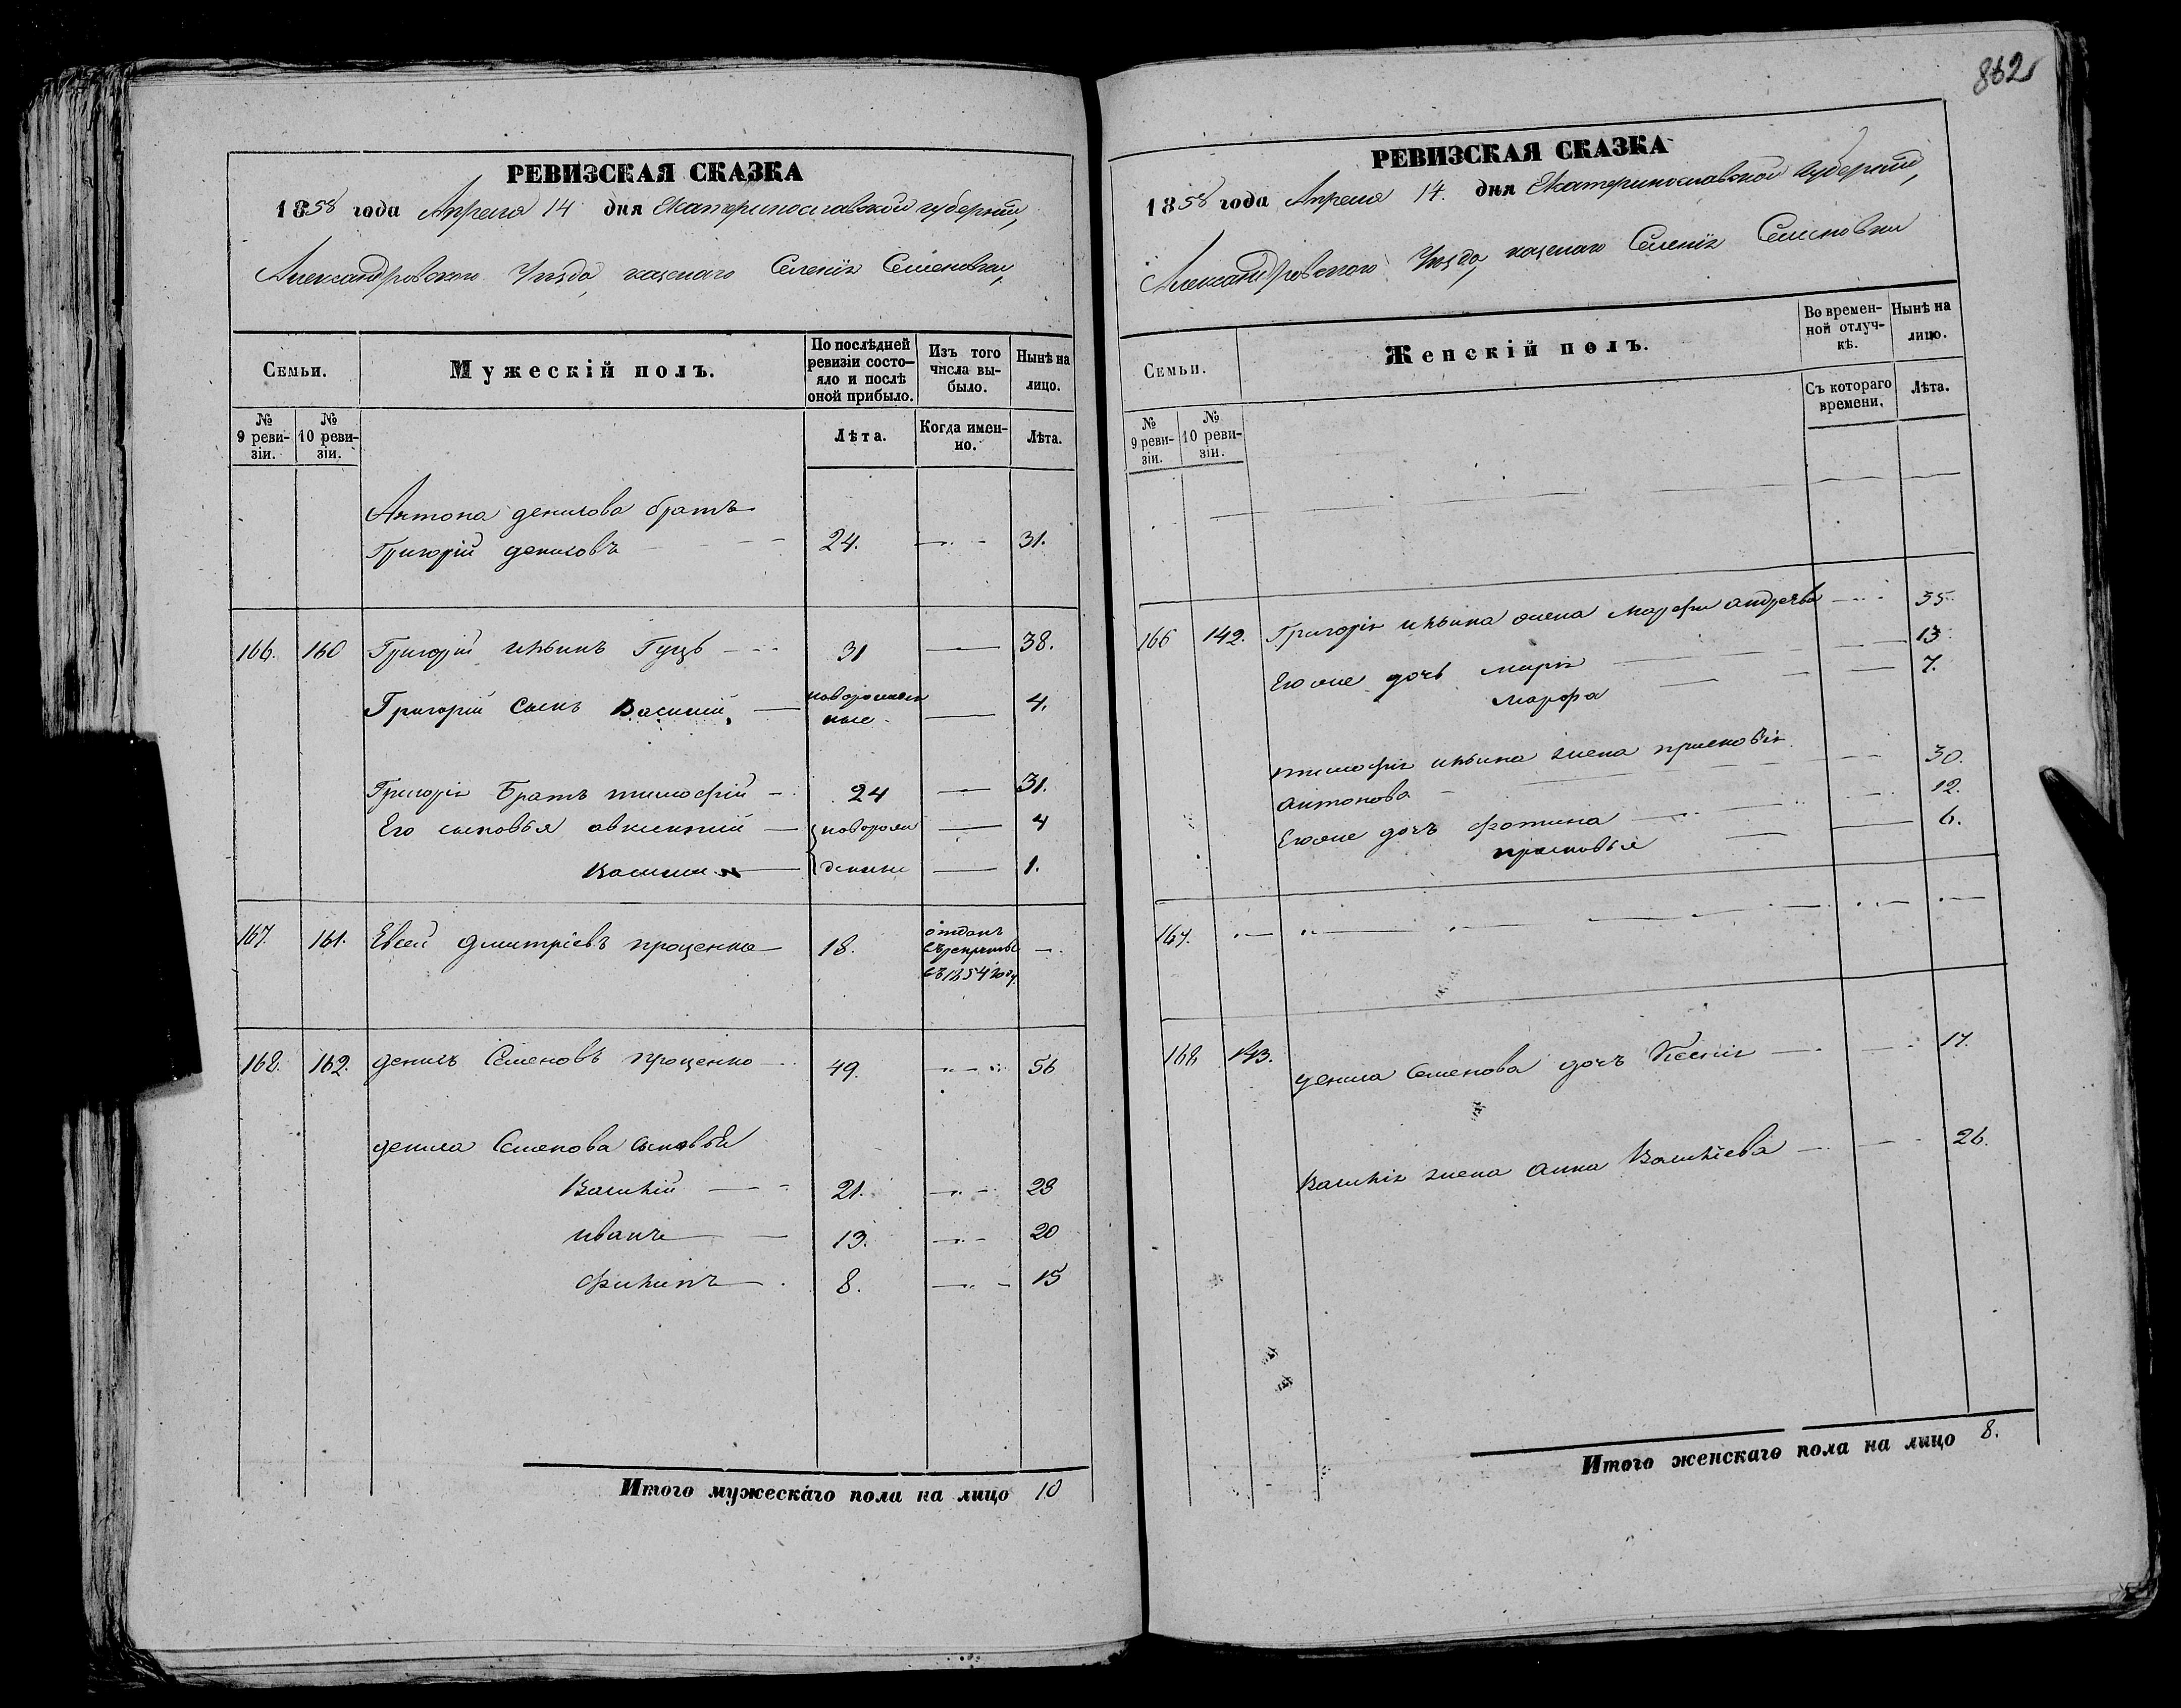 РЕВИЗСКАЯ СКАЗКА
1858 года Апреля 14 дня Екатеринославской губернии,
Александровского Уезда, казенаго Селенія Семеновки,
Семьи.
Мужескій полъ.
По послѣдней ревизіи состояло и послѣ оной прибыло.
Изъ того числа выбыло.
Нынѣ на лицо.
№ 9 ревизіи.
№ 10 ревизіи.
Лѣта.
Когда именно.
Лѣта.
Антона денисова братъ
Григорій денисовъ 24. 31.
166. 160 Григорій ильинъ Гуцъ 31 38.
Григорій сынъ Василий 4.
Григорія Братъ тимофій 24 31.
Его сыновья авксентий 4
Василий 1.
167. 161. Евсей дмитріевъ проценко 18. отданъ въ рекруты въ 1854 году
168. 162. денисъ Семеновъ проценко 49. 56
дениса Семенова сыновья
Василій 21. 28
иванъ 13. 20
филипъ 8. 15
Итого мужескаго пола на лицо 10
862
РЕВИЗСКАЯ СКАЗКА
1858 года Апреля 14. дня Екатеринославской губерніи,
Александровского Уезда, казенаго Селенія Семеновки
Семьи.
Женскій полъ.
Во временной отлучкѣ.
Нынѣ на лицо.
№ 9 ревизіи.
№ 10 ревизіи.
Съ котораго времени.
Лѣта.
166 142. Григорія ильина жена андреева 35.
Его же дочь марія 13
марфа 7.
тимофія ильина жена
антонова 30.
Его же дочь фотина 12.
прасковья 6.
167.
168 143. дениса Семенова дочь Ксенія 17.
Василія жена анна Васильева 26.
Итого женскаго пола на лицо 8.